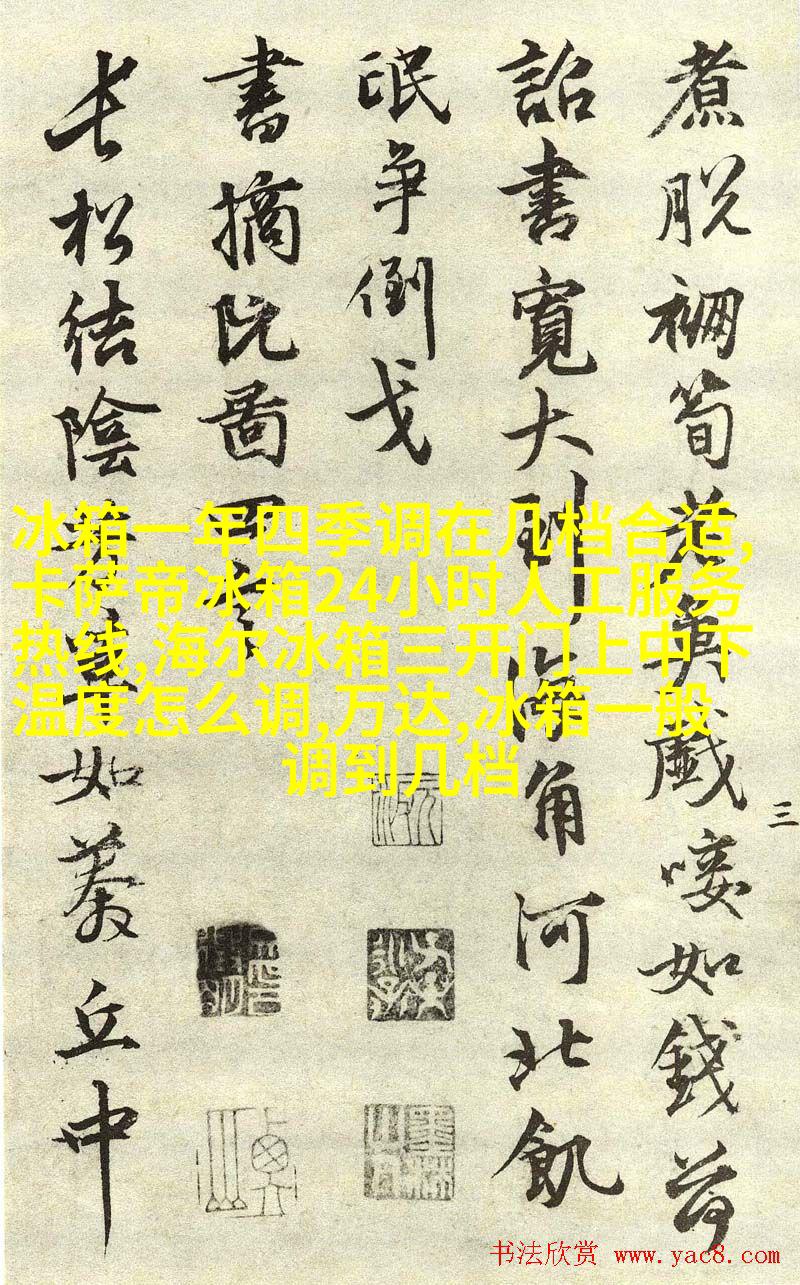 煮脱筍老如錢荷
三
詔書寬大到海角河北飢
氓争倒戈
書摘阮圖
長松結陰如幕丘中
冰箱一年四季调在几档合适,
卡萨帝冰箱24小时人工服务
热线,海尔冰箱三开门上中下
温度怎么调,万达,冰箱一般
调到几档
书法欣赏 www.yac8.com